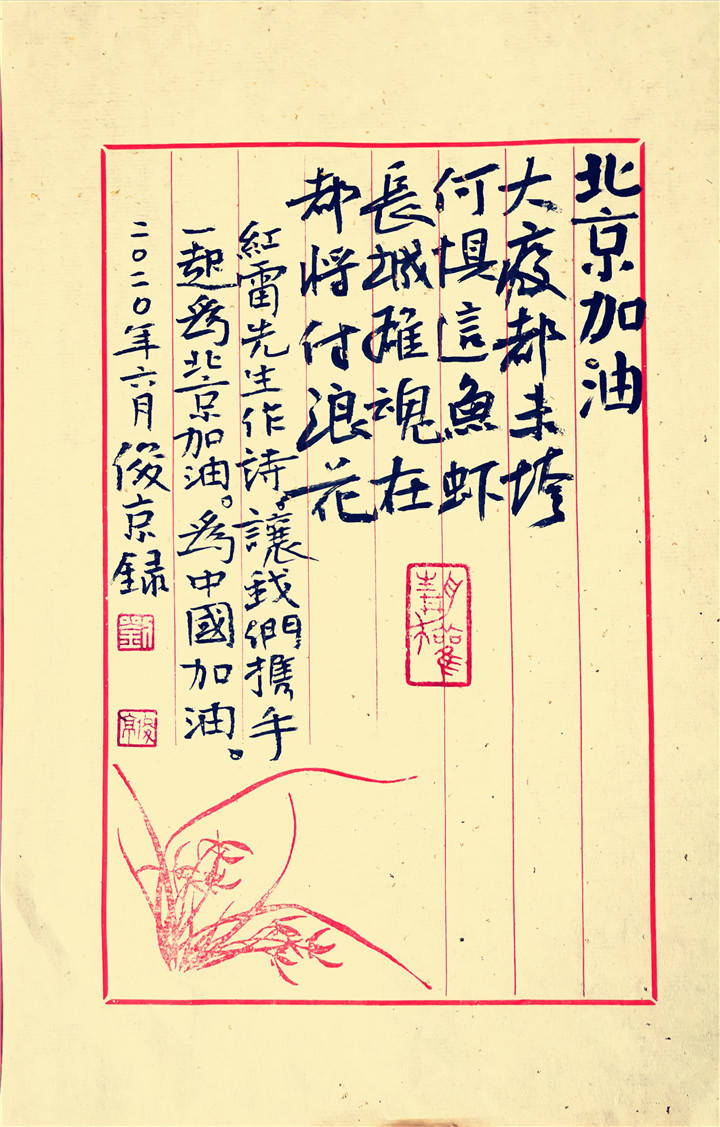 北京加油
大疫都未垮
何惧這魚虾
長城雄魂在
都将付浪花
紅雷先生作詩。讓我們攜手
一起為北京加油。為中國加油。
二〇二〇年六月俊京録
劉
俊京